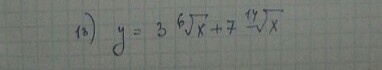 13) y = 3 ⁶√x + 7 ¹⁴√x